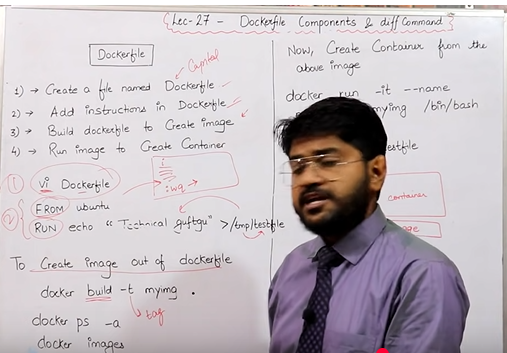 Lec-27 - Dockerfile Components & diff Command
Dockerfile
Capital
1) → Create a file named Dockerfile
2) → Add instructions in Dockerfile
3) → Build dockerfile to Create image
4) → Run image to Create Container
1 vi Dockerfile
i
:wq →
2 FROM ubuntu
RUN echo "Technical guftgu" > /tmp/testfile
To Create image out of dockerfile
docker build -t myimg .
tag
docker ps -a
docker images
Now, Create Container from the
above image
docker run -it --name
myimg /bin/bash
estfile
container
ge